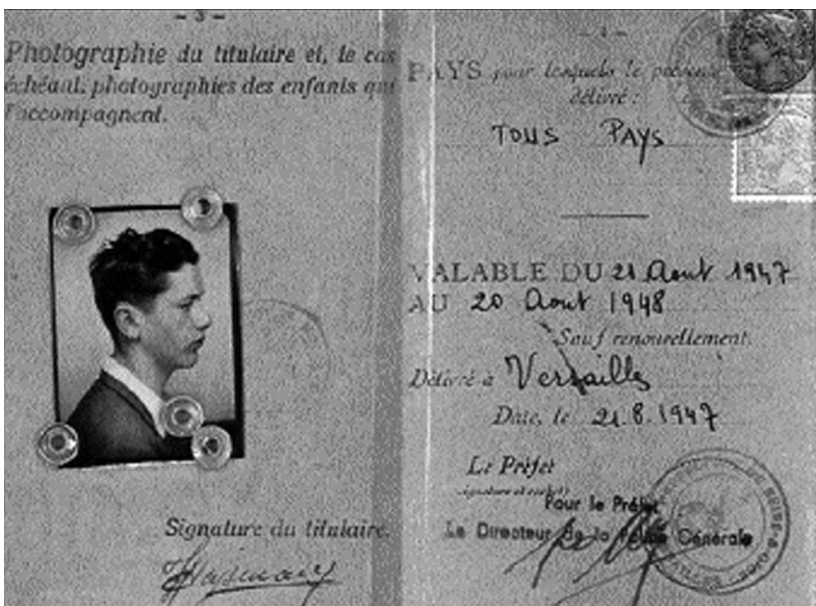 - 3 -
Photographie du titulaire et, le cas
échéant, photographies des enfants qui
l'accompagnent.
Signature du titulaire.
- 4 -
PAYS pour lesquels le présent
délivré :
TOUS PAYS
VALABLE DU 21 Aout 1947
AU 20 Aout 1948
Sauf renouvellement.
Délivré à Versailles
Date, le 21.8.1947
Le Préfet
Pour le Préfet
Le Directeur de la Police Générale